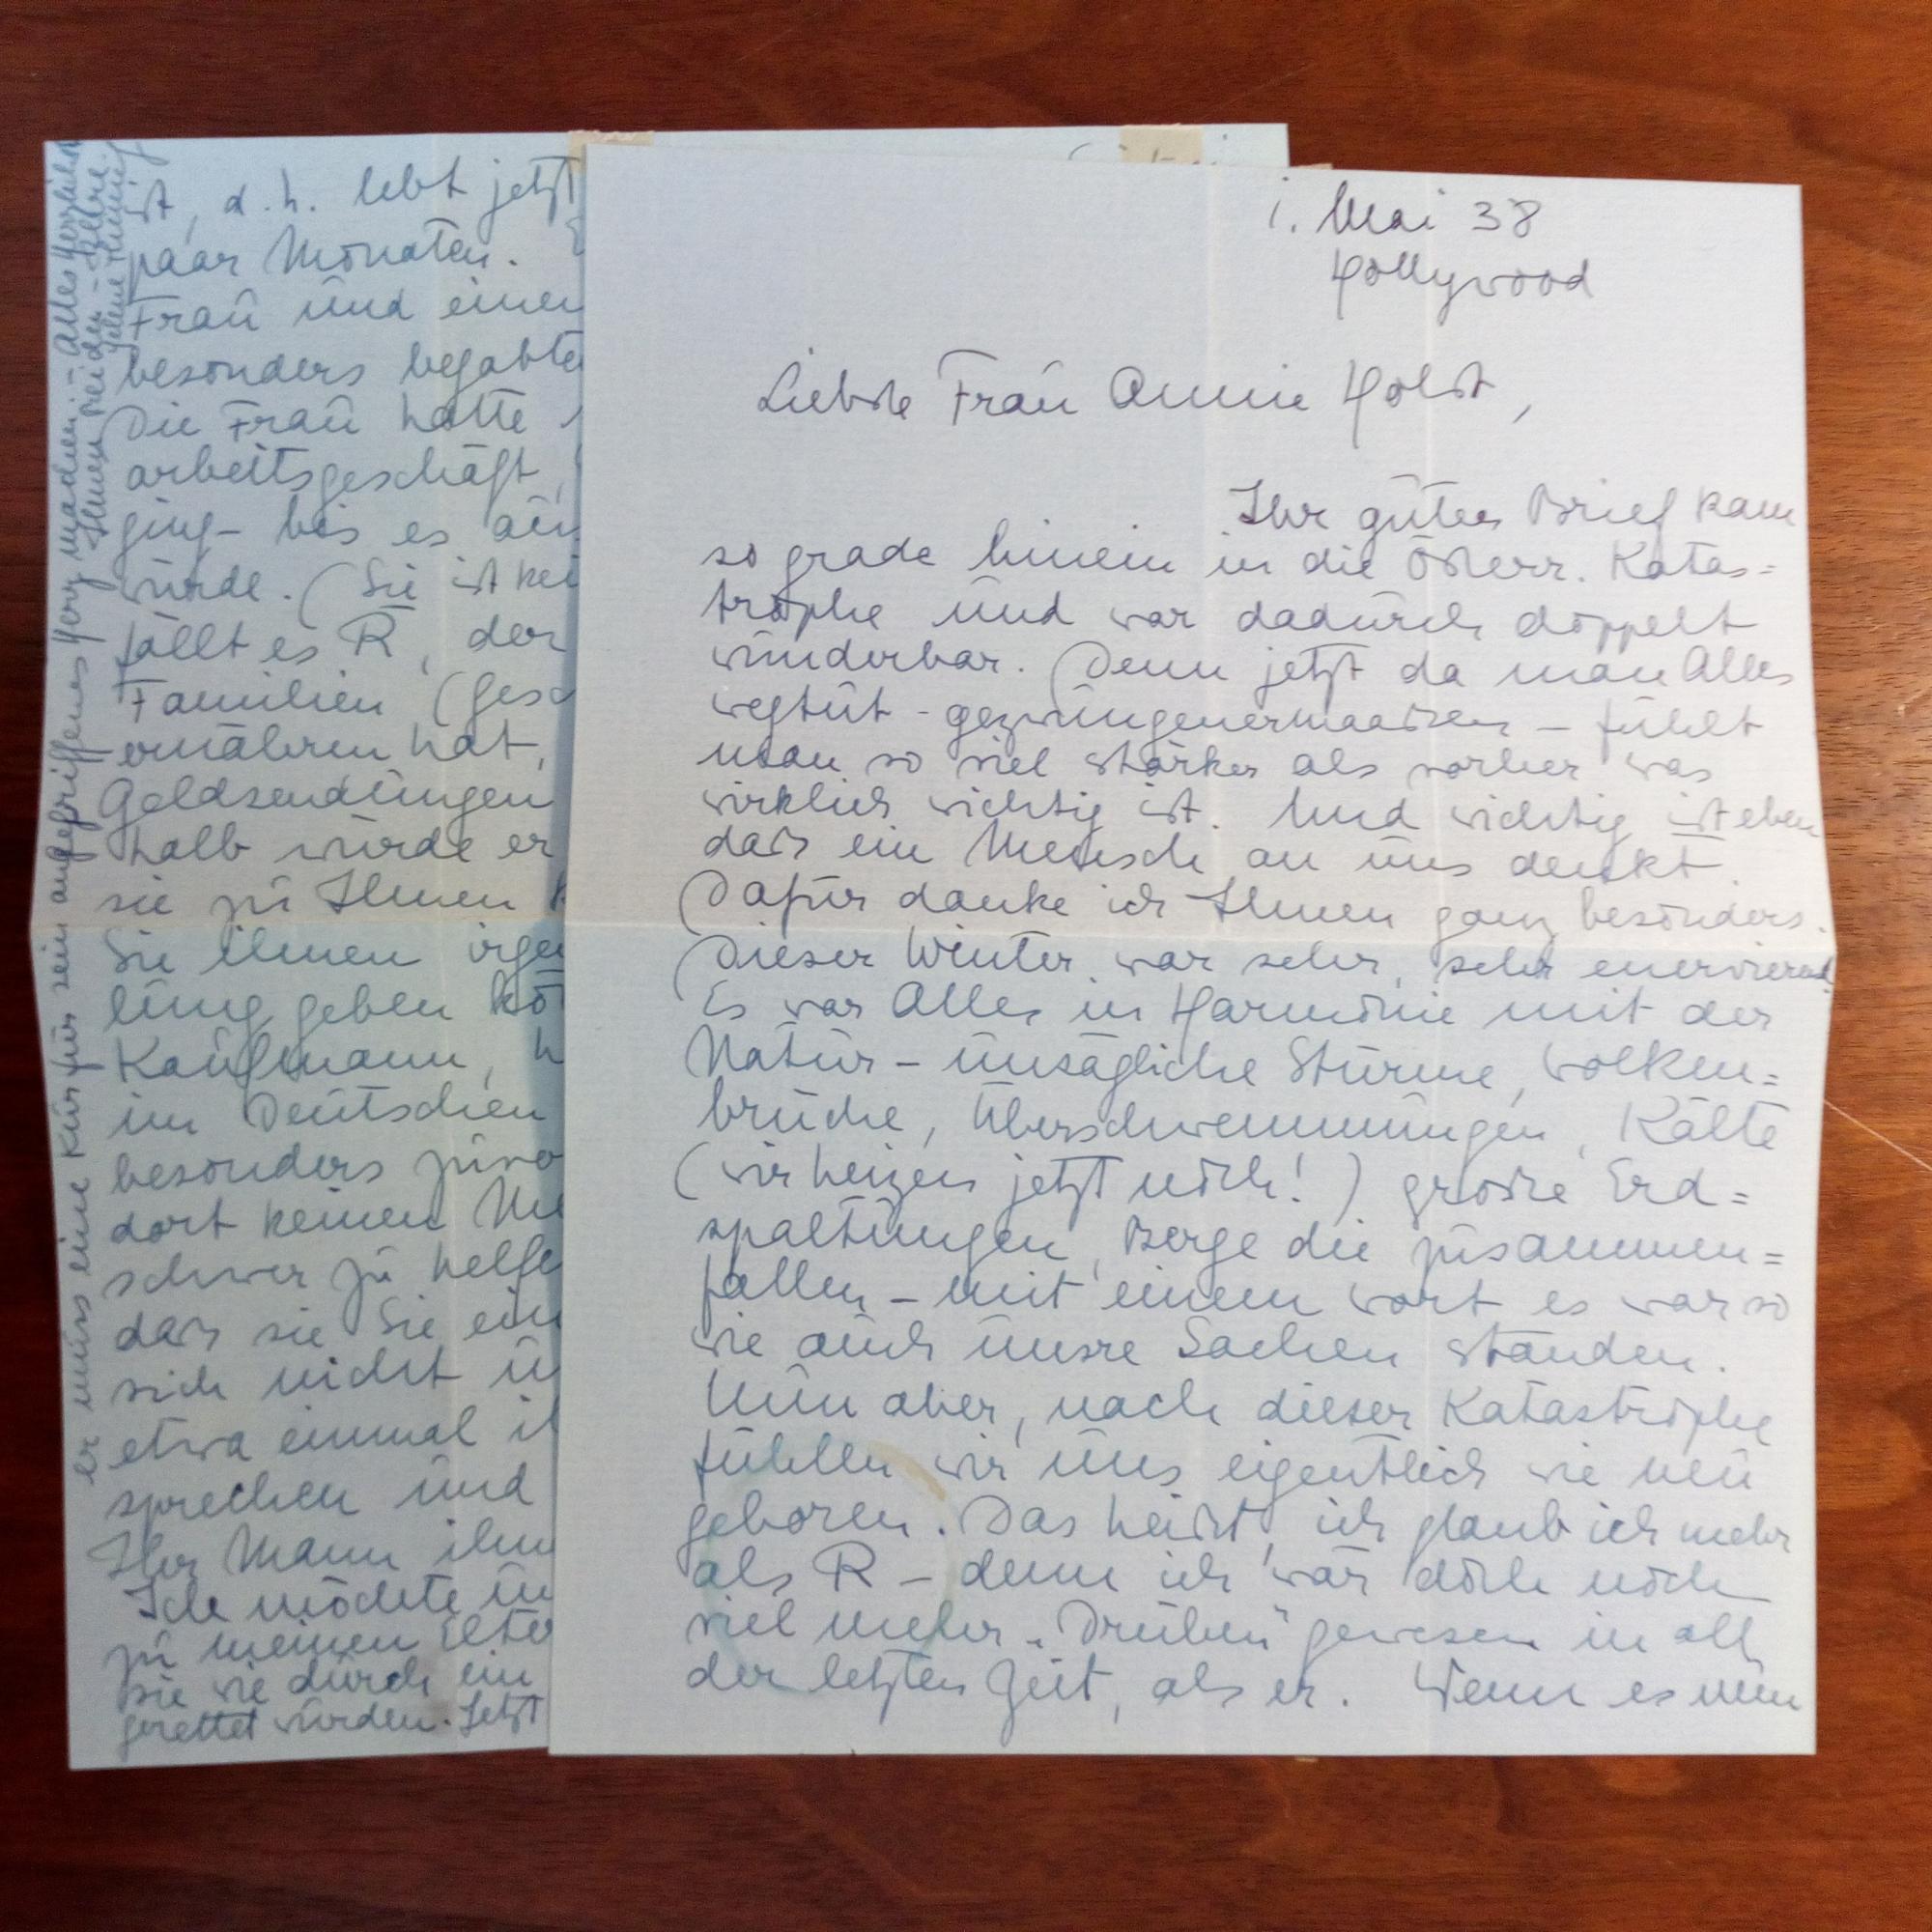 1. Mai 38
Hollywood
Liebste Frau Annie Holst,
Ihr guter Brief kam
so grade hinein in die Österr. Katas=
trophe und war dadurch doppelt
wunderbar. Denn jetzt da man Alles
wegtut - gezwungenermaassen - fühlt
man so viel stärker als vorher was
wirklich wichtig ist. Und wichtig ist eben
dass ein Mensch an uns denkt.
Dafür danke ich Ihnen ganz besonders.
Dieser Winter war sehr, sehr enervierend.
Es war Alles in Harmonie mit der
Natur - unsägliche Stürme, Wolken=
brüche, Überschwemmungen, Kälte
(wir heizen jetzt noch!) grosse Erd=
spaltungen, Berge die zusammen=
fallen - mit einem Wort es war so
wie auch unsre Sachen standen.
Nun aber, nach dieser Katastrophe
fühlen wir uns eigentlich wie neu
geboren. Das heisst, ich glaub ich mehr
als R - denn ich war doch noch
viel mehr „Drüben" gewesen in all
der letzten Zeit, als er. Wenn es nun
ist, d.h. lebt jetzt
paar Monaten.
Frau und einen
besonders begabte
Die Frau hatte
arbeitsgeschäft,
ging - bis es
würde. (Sie ist
fällt es R, der
Familien (
ernähren hat,
Geldsendungen
halb würde er
sie zu Ihnen
Sie ihnen
lung geben
Kaufmann,
im Deutschen
besonders
dort keinen
schwer zu
dass sie Sie
sich nicht
etwa einmal
sprechen und
Ihr Mann
Ich möchte
zu meinen
sie wie durch ein
gerettet wurden. Jetzt
er muss eine Kur für sein angegriffenes Herz machen. - Alles Herzliche
Ihnen beiden -
Helene